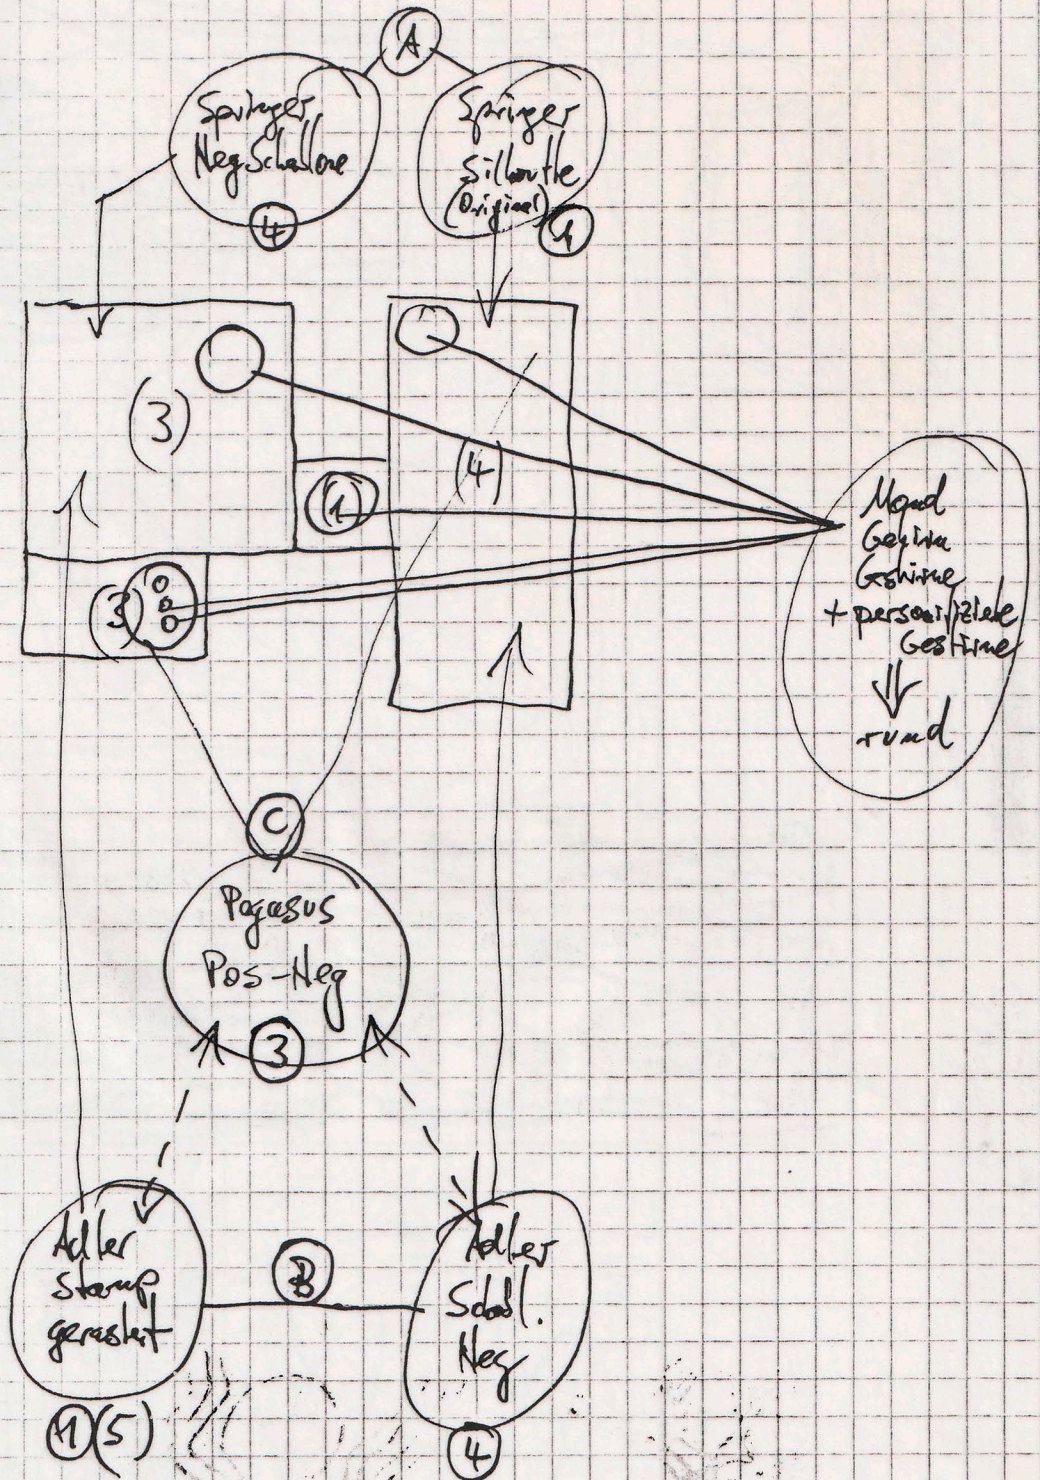 A
Springer
Neg Schablone
4
Springer
Silhoutte
(Original)
1
(3)
(4)
1
(3)
Mond
Gestirn
Gestirne
+ personifizierte
Gestirne
⇓
rund
C
Pegasus
Pos-Neg
3
Adler
Stamp
gerastert
1 (5)
B
Adler
Schabl.
Neg
4